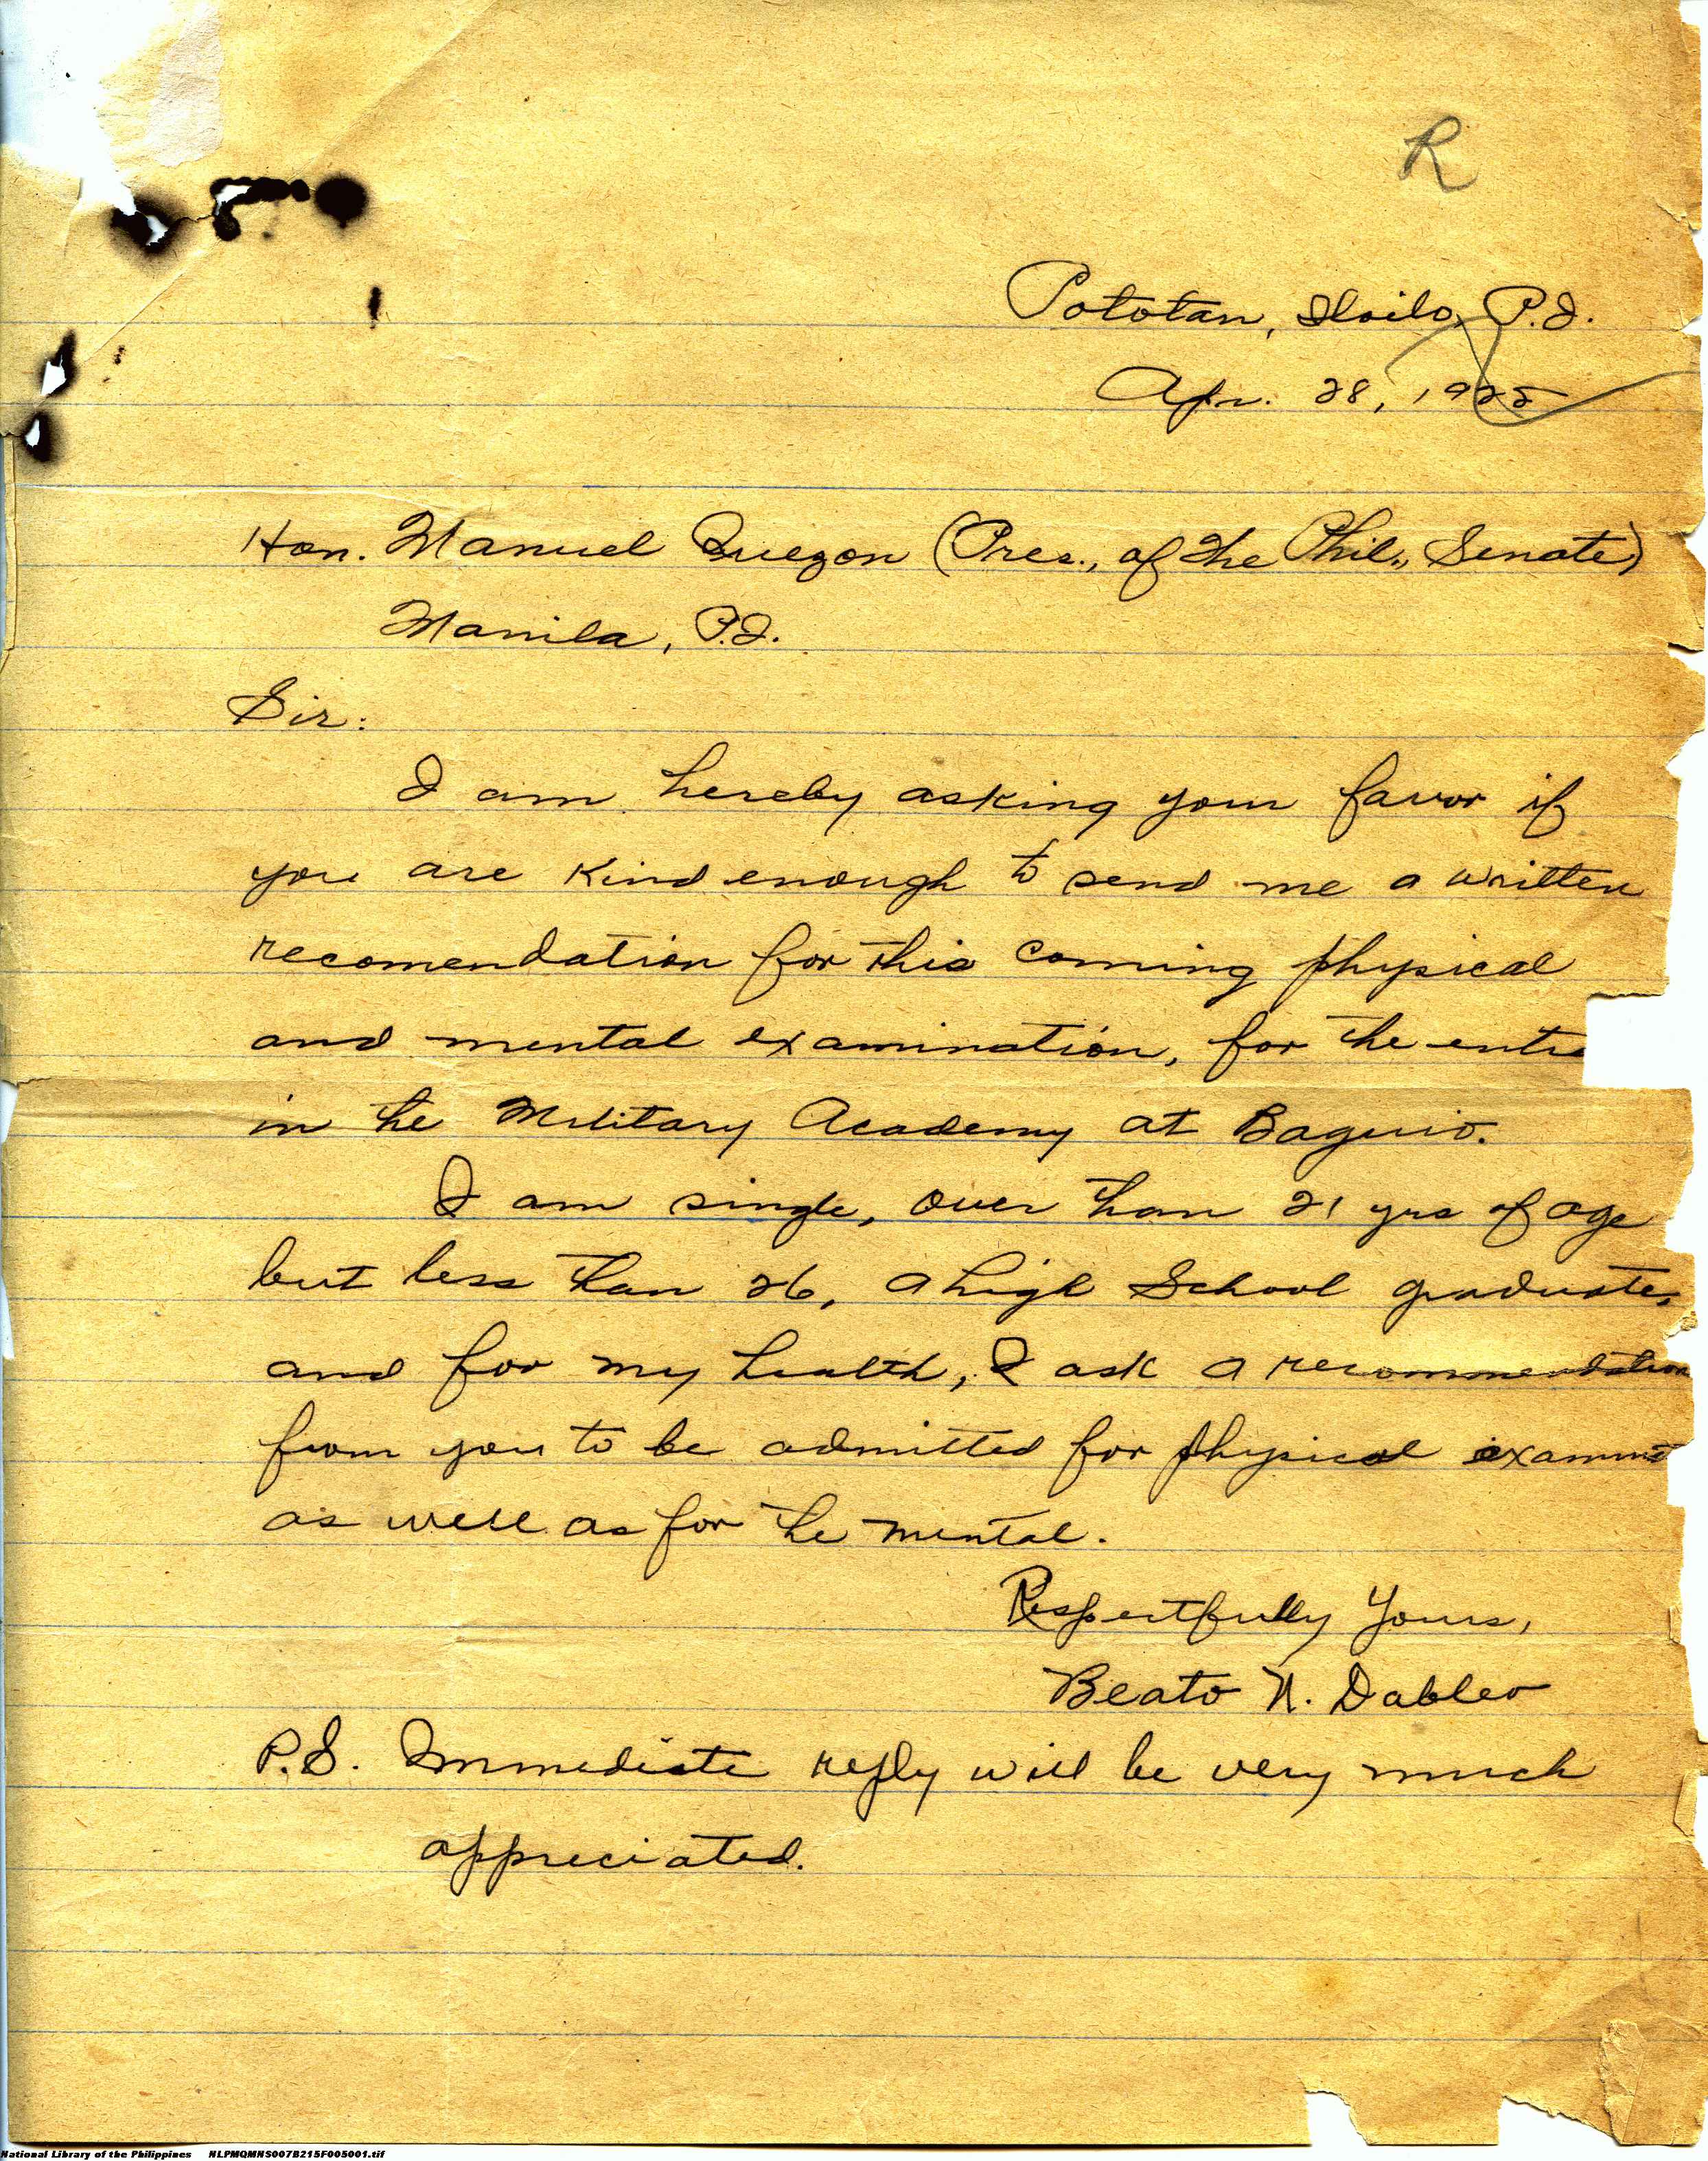 R
Pototan, Iloilo, P.I.
Apr. 28, 1925
Hon. Manuel Quezon (Pres., of the Phil., Senate)
Manila, P.I.
Sir:
I am hereby asking your favor if
you are kind enough to send me a written
recomendation for this coming physical
and mental examination, for the entra
in the Military Academy at Baguio.
I am single, over than 21 yrs of age
but less than 26, a high School graduate,
and for my health, I ask a recommendation
from you to be admitted for physical
as well as for the mental.
Respectfully Yours,
Beato N. Dableo
P.S. Immediate reply will be very much
appreciated.
National Library of the Philippines NLPMQMNS007B215F005001.tif